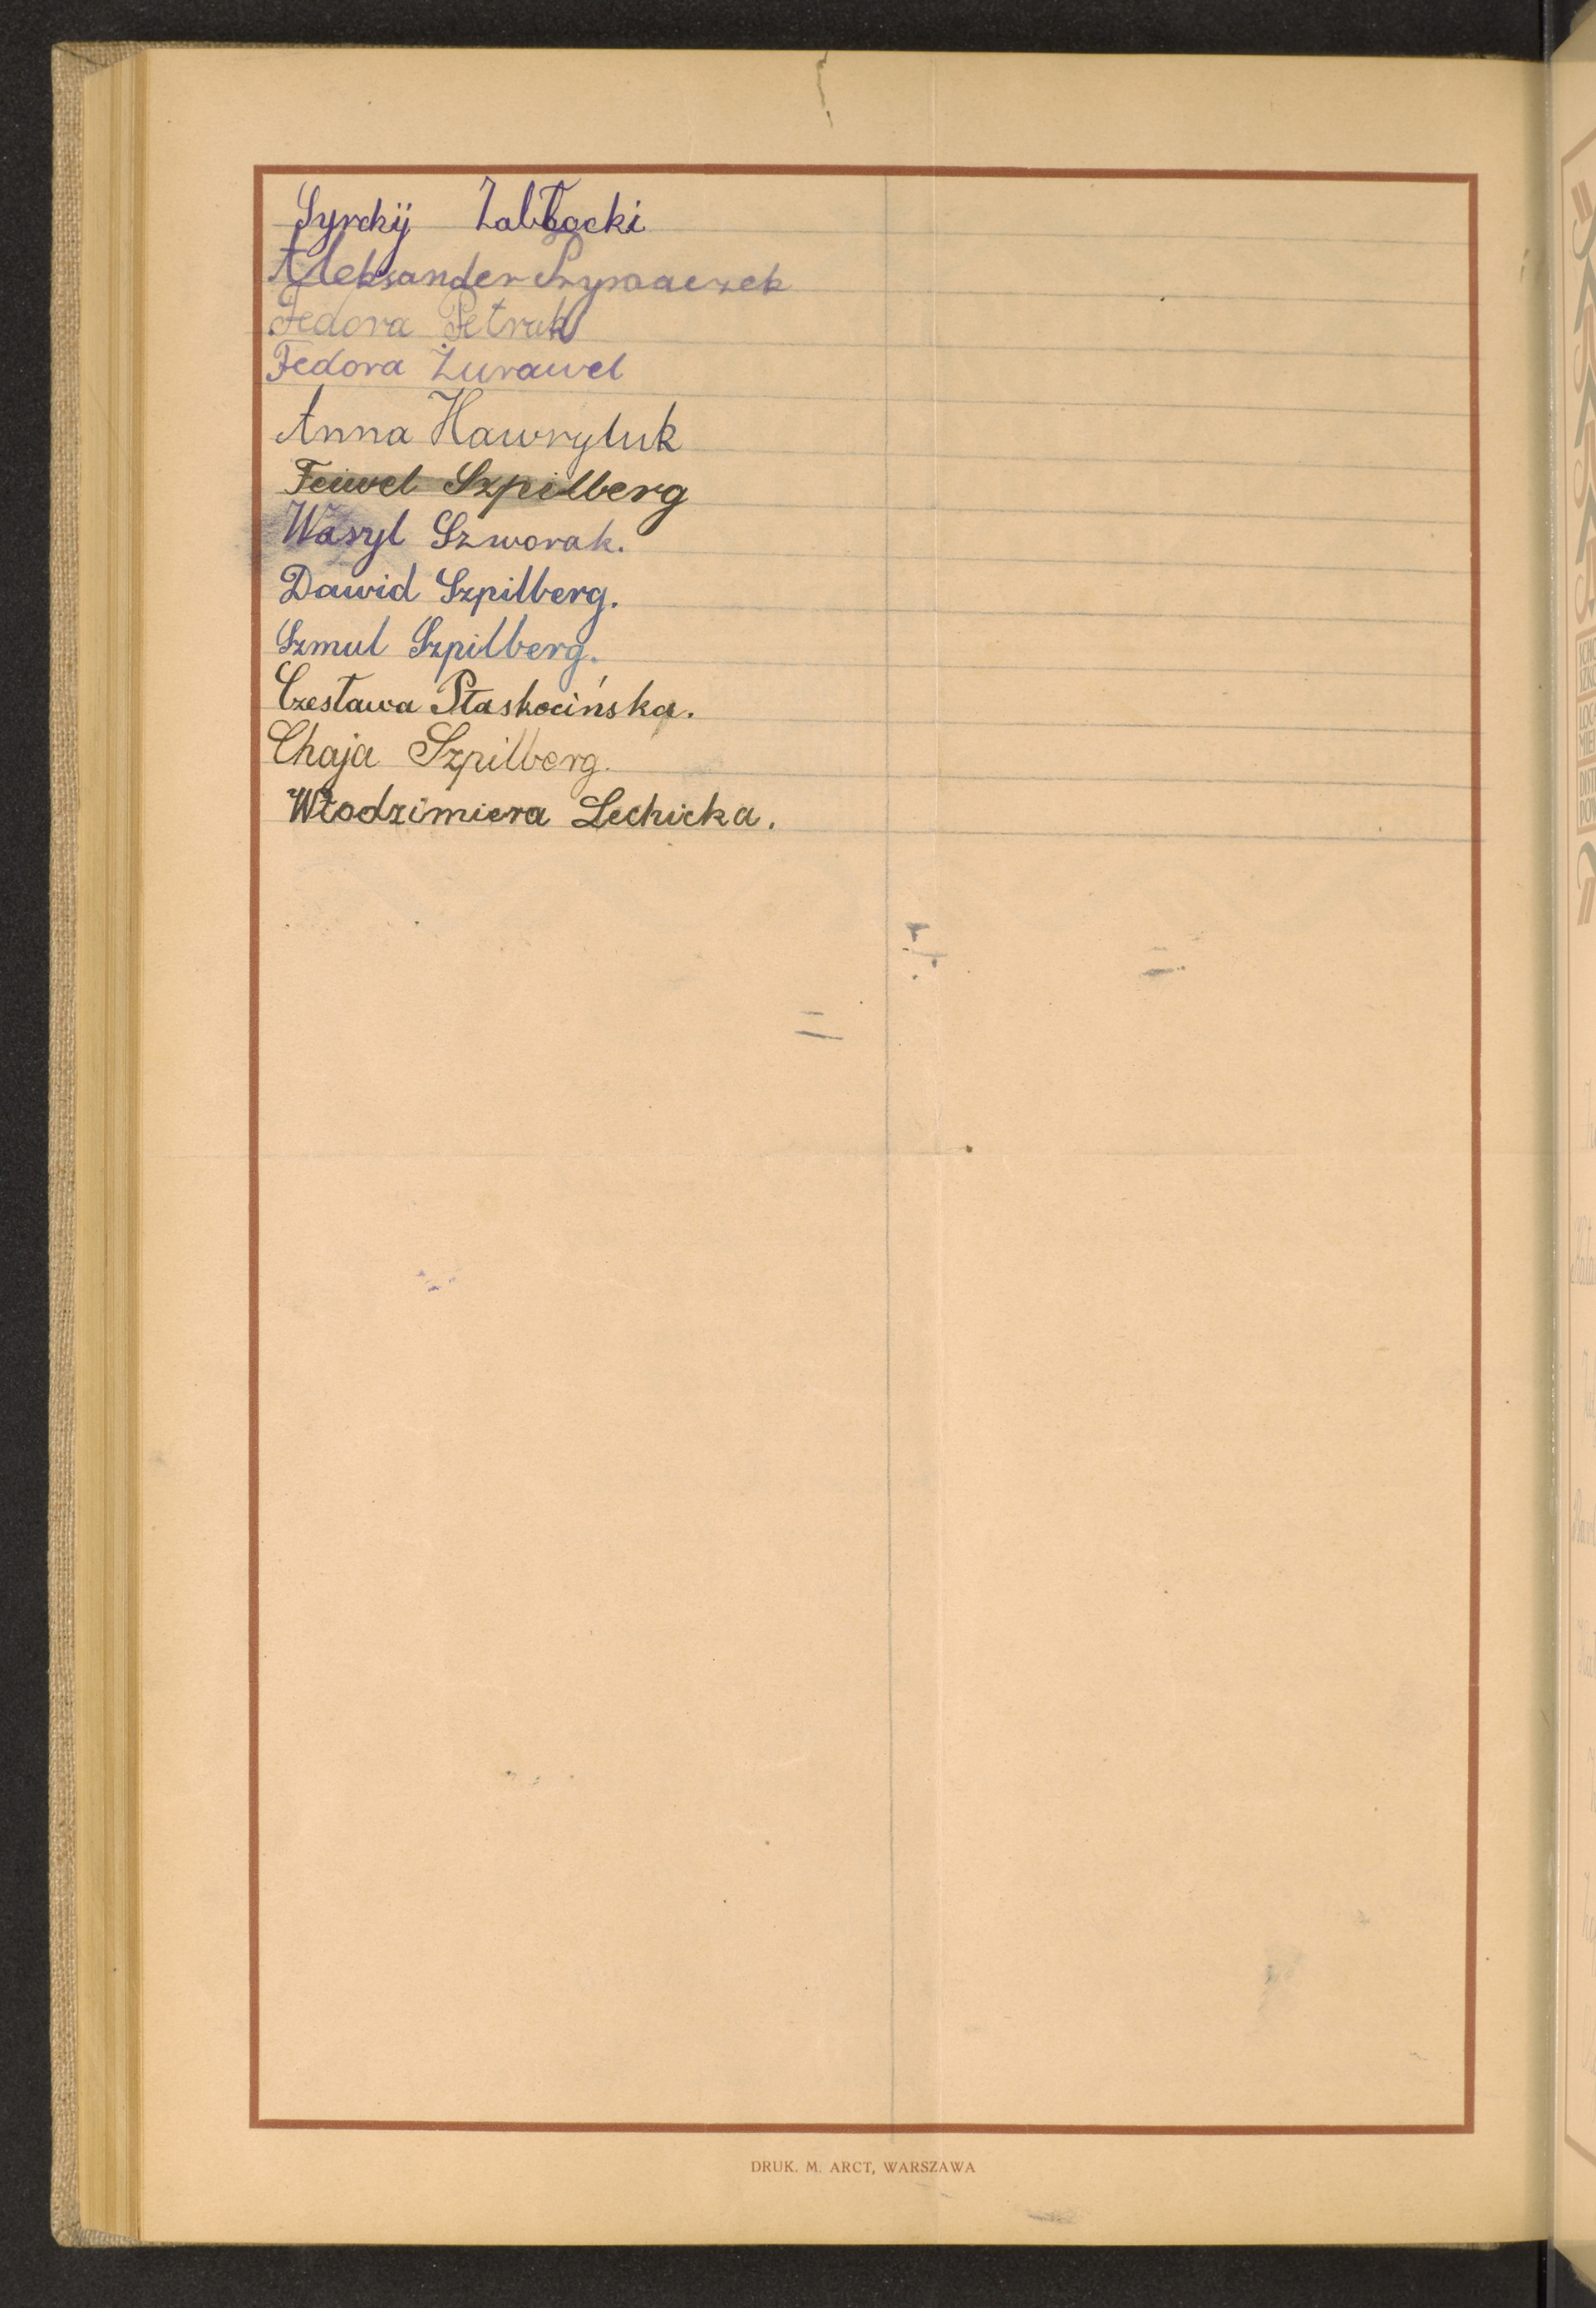 Zabłocki
Aleksander
Fedora Petruk
Fedora Żurawel
Anna Hawryluk
Feiwel Szpilberg
Wasyl Szworak.
Dawid Szpilberg.
Szmul Szpilberg.
Czesława Płaskocińska.
Chaja Szpilberg.
Włodzimiera Lechicka.
DRUK. M. ARCT, WARSZAWA